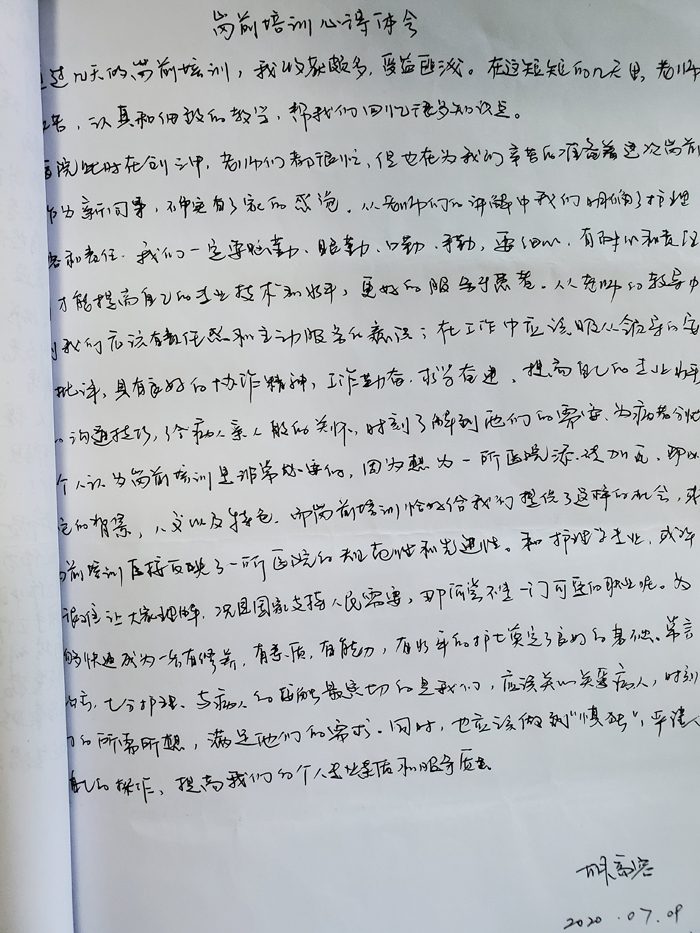 岗前培训心得体会
过几天的岗前培训，我收获颇多，受益匪浅。在这短短的几天里，老师
苦，认真和细致的教学，帮我们回忆很多知识点。
医院此时在创三甲，老师们都很忙，但也在为我们辛苦的准备着这次岗前
作为新同事，不由有了家的感觉。从老师们的讲解中我们明确了护理
和责任。我们一定要脑勤、眼勤、口勤、手勤，要细心、有耐心和责任
才能提高自己的专业技术和水平，更好的服务于患者。从老师的教导中
到我们应该有责任感和主动服务的意识；在工作中应该服从领导的安
批评，具有良好的协作精神，工作勤奋，求学奋进，提高自己的专业水平
沟通技巧，给病人亲人般的关怀，时刻了解到他们的需要，为病者分忧
个人认为岗前培训是非常必要的，因为想为一所医院添砖加瓦，即
它的背景，人文以及特色，而岗前培训恰好给我们提供了这样的机会，
前培训直接反映了一所医院的规范性和先进性。和护理专业，或许
很难让大家理解，况且国家支持人民需要，那何尝不是一门可爱的职业呢。为
够快速成为一名有修养，有素质，有能力，有水平的护士奠定了良好的基础。常言
治，七分护理。与病人的接触最密切的是我们，应该关心关爱病人，时刻
们的所需所想，满足他们的需求。同时，也应该做到“慎独”，严谨
自己的操作，提高我们的个人专业素质和服务质量。
2020.07.09